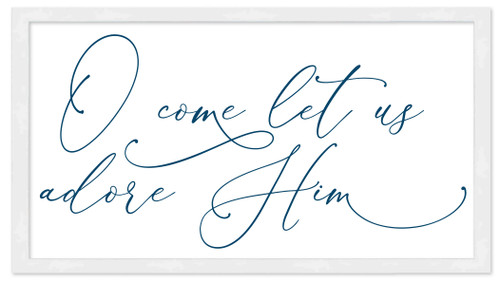 O come let us
adore Him